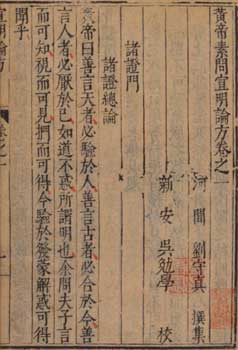 黃帝素問宣明論方卷之一
河間 劉守真 撰集
新安 吳勉學 校
諸證門
諸證總論
黃帝曰善言天者必驗於人善言古者必合於今善
言人者必厭於已如道不惑所謂明也余聞夫子言
而可知視而可見捫而可得令驗於發蒙解惑可得
聞乎
宣明論方 卷之一